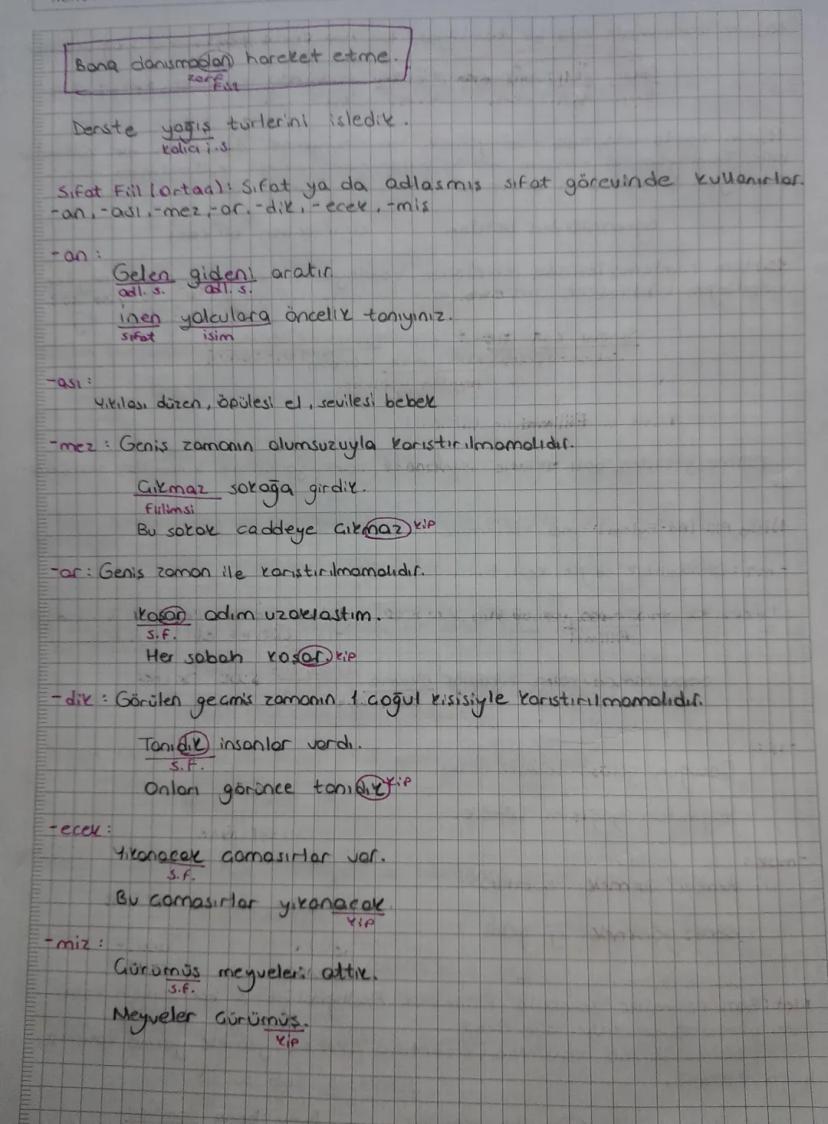 Bana danışmadan hareket etme.
zarf
Fiil
Derste yağış türlerini işledik.
kalıcı i.s.
Sıfat Fiil (ortaç): Sıfat ya da adlaşmış sıfat görevinde kullanırlar.
-an, -ası, -mez, -ar, -dik, -ecek, -miş
-an:
Gelen gideni aratır
adl. s. adl. s.
inen yolculara öncelik tanıyınız.
sıfat isim
-ası:
Yıkılası düzen, öpülesi el, sevilesi bebek
-mez: Geniş zamanın olumsuzuyla karıştırılmamalıdır.
Çıkmaz sokağa girdik.
Fiilimsi
Bu sokak caddeye çıkmaz kip
-ar: Geniş zaman ile karıştırılmamalıdır.
koşar adım uzaklaştım.
s.f.
Her sabah koşar kip
-dik: Görülen geçmiş zamanın 1. çoğul kişisiyle karıştırılmamalıdır.
Tanıdık insanlar vardı.
s.f.
Onları görünce tanıdık kip
-ecek:
Yıkanacak çamaşırlar var.
s.f.
Bu çamaşırlar yıkanacak
kip
-miz:
Çürümüş meyveleri attık.
s.f.
Meyveler çürümüş.
kip